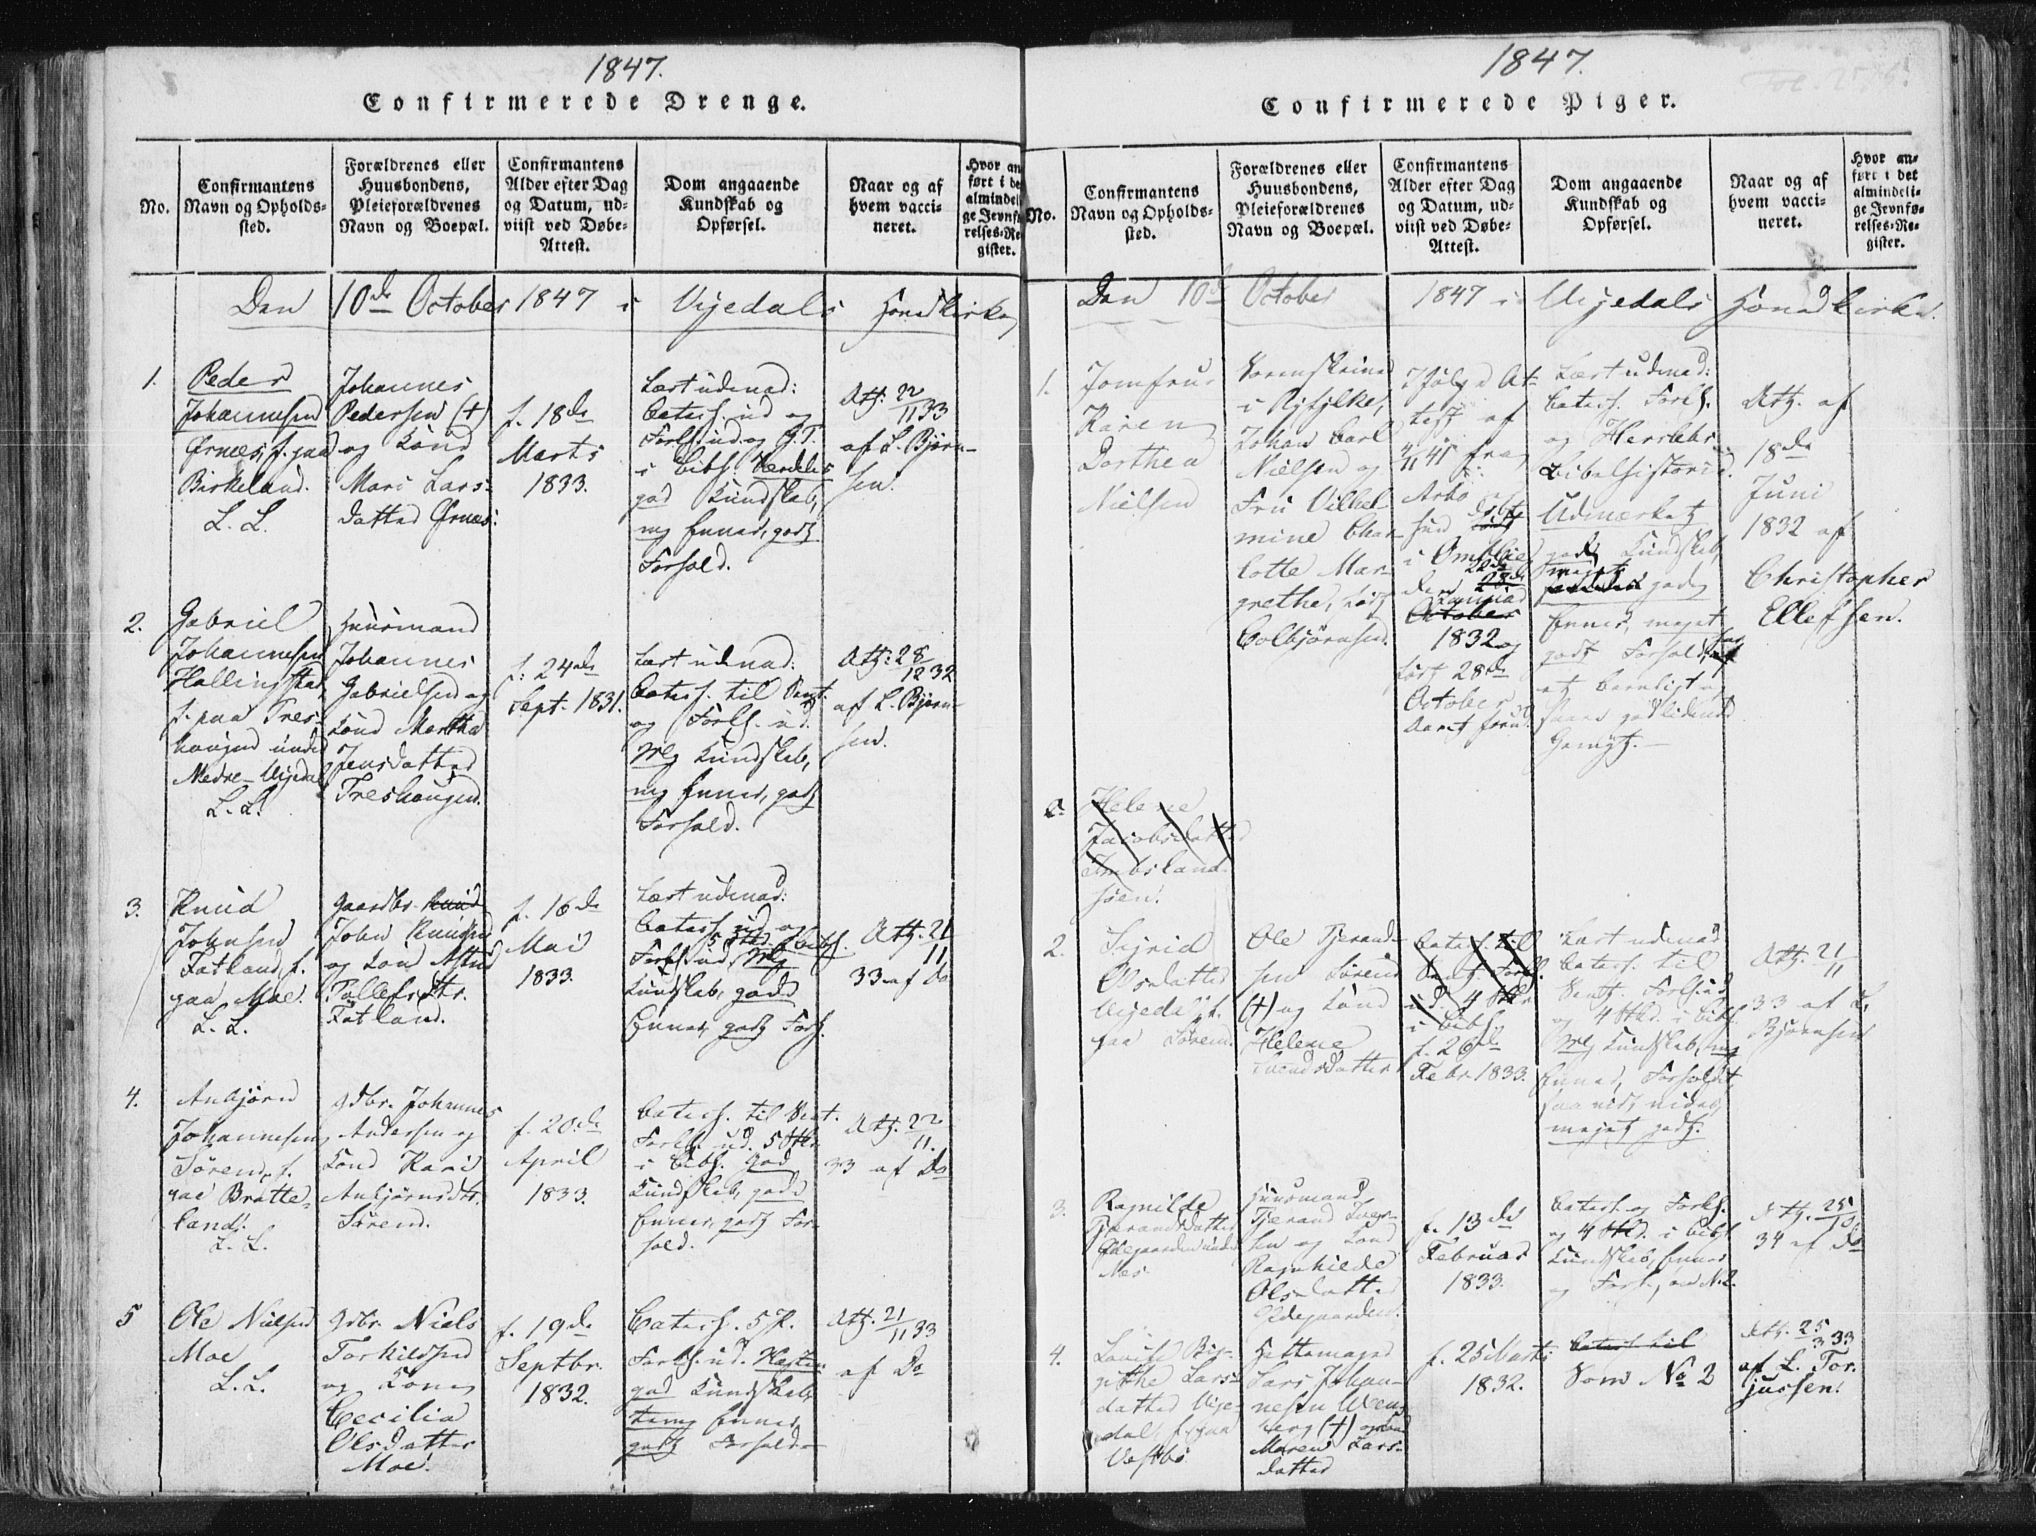 1847.
Confirmerede Drenge.
No.
Confirmantens
Navn og Opholds-
sted.
Forældrenes eller
Huusbondens,
Pleieforældrenes
Navn og Boepæl.
Confirmantens
Alder efter Dag
og Datum, ud-
viist ved Døbe-
Attest.
Dom angaaende
Kundskab og
Opførsel.
Naar og af
hvem vacci-
neret.
Hvor an
ført i de
almindeli
ge Jevnfø
relses-Re
gister.
Den 10de October 1847 i Vigedals Hovedkirke
1.
Peder
Johannesen
Ørnes, f. paa
Birkeland.
L. L.
Johannes
Pedersen (+)
og Kone
Mari Lars-
datter Ørnes.
f. 18de
Marts
1833.
Lært udenad:
Catech. ud og
Forkl. ud og G. T.
i Bibh.
god Kundskab,
mg Evner, godt
Forhold.
Att. 22/11 33
af L. Bjørn-
sen.
2.
Gabriel
Johannesen
Hallingstad
f. paa Tres-
haugen under
Nedre-Vigedal
L. L.
Huusmand
Johannes
Gabrielsen og
Kone Martha
Jensdatter
Treshaugen.
f. 24de
Sept. 1831.
Lært udenad:
Catech. til
og Forkl. ud.
Mg Kundskab,
mg Evner, godt
Forhold.
Att. 28/12 32
af L. Bjørn-
sen.
3.
Knud
Johnsen
Fatland, f.
paa Moe.
L. L.
Gaardbr. Knud
John Knudsen
og Kone Astrid
Tollefsdtr.
Fatland.
f. 16de
Mai
1833.
Lært udenad:
Catech. ud og
Forkl. ud, Mg
Kundskab, gode
Evner, godt Forh.
Att. 21/11
33 af Do
4.
Anbjørn
Johannesen
Søvend, f.
paa Bratte-
land.
L. L.
Gdbr. Johannes
Andersen og
Kone Kari
Anbjørnsdtr.
Søvend.
f. 20de
April
1833.
Catech. til
Forkl. ud. 5 Stkr
i Bibh. God
Kundskab, gode
Evner, godt For-
hold.
Att. 22/11.
33 af Do
5
Ole Nielsen
Moe
L. L.
Gdbr. Niels
Torkildsen
og Kone
Cecilia
Olsdatter
Moe.
f. 19de
Septbr.
1832.
Catech. 5 P.
Forkl. ud. Næsten
god Kundskab
temg Evner,
godt Forhold
Att. 21/11 33
af Do
1847.
Confirmerede Piger.
No.
Confirmantens
Navn og Opholds-
sted.
Forældrenes eller
Huusbondens,
Pleieforældrenes
Navn og Boepæl.
Confirmantens
Alder efter Dag
og Datum, ud-
viist ved Døbe-
Attest.
Dom angaaende
Kundskab og
Opførsel.
Naar og af
hvem vacci-
neret.
Hvor an-
ført i det
almindeli-
ge Jevnfø-
relses-Re-
gister.
Den 10de October 1847 i Vigedals Hovedkirke.
1.
Jomfru
Karen
Dorthea
Nielsen
Sorenskriver
i Ryfylke,
Johan Carl
Nielsen og
Fru Vilhel-
mine Char-
lotte Mar-
grethe, født
Colbjørnsen.
Ifølge At-
test af
4/11 41 fra
i
den 28de
October
1832 og
døbt 28de
October
Aaret forud.
Lært udenad:
Catech. Forkl.
og Herslebs
Bibelhistorie.
Udmærket
gode Kundskab,
meget gode
Evner, meget
godt Forhold,
Att. af
18de
Juni
1832 af
Christopher
Ellefsen.
Helene
Jacobsdatter
Imbsland-
søen.
2.
Sigrid
Olsdatter
Vigedal, f.
paa Søvend.
Ole Tjerand-
sen Søvend
(+) og Kone
Helene
Evindsdatter
Catech. til
Forkl.
ud. 4 Stkr
i Bibh.
f. 26de
Febr. 1833.
Lært udenad
Catech. til
Forkl. ud
og 4 Stkr. i Bibh.
Mg Kundskab, mg
Evner, Forholdet
meget godt.
Att. 21/11
33 af L.
Bjørnsen
3.
Ragnilde
Tjerandsdatter
Ødegaarden under
Nes
Huusmand
Tjerand Iver-
sen og Kone
Ragnhilde
Olsdatter
Ødegaarden.
f. 13de
Februar
1833.
Catech. og Forkl.
og 4 Stkr. i Bibh.
Kundskab, Evner
og Forh. som No 2.
Att. 25/10
34 af Do
4.
Lovise Bir-
githe Lars-
datter Vige-
dal, f. paa
Vestbø
Hattemager
Lars Johan-
nesen Wens-
berg (+) og Kone
Maren Lars-
datter
f. 25 Marts
1832.
Catech til
Som No 2
Att. 25/3 33
af L. Tor-
jussen.